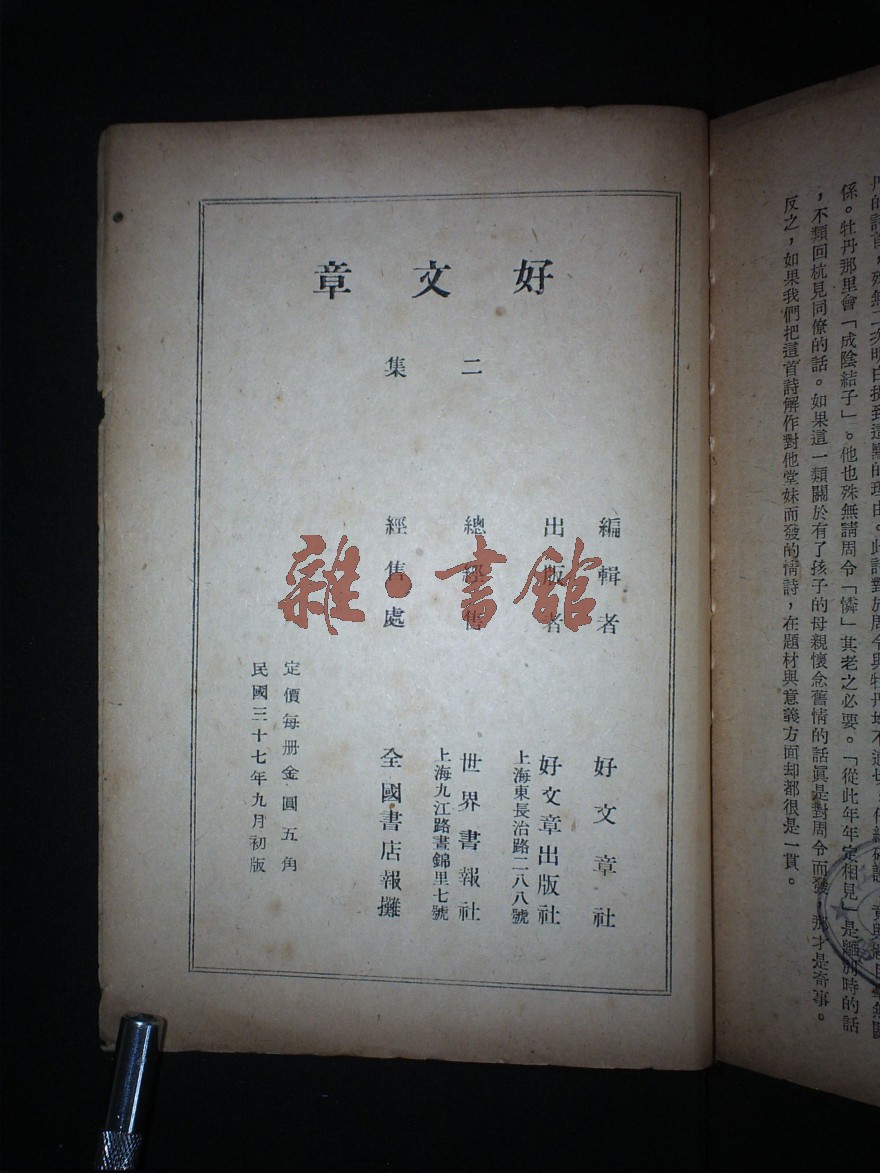 ，不類回杭見同僚的話。如果這一類關於有了孩子的母親懷念舊情的話眞是對周令而發 那才是奇事。
反之，如果我們把這首詩解作對他堂妹而發的情詩，在題材與意義方面却都很是一貫。
係。牡丹那里會「成陰結子」。他也殊無請周令「憐」其老之必要。「從此年年定相見」是
好文章
二集
編輯者 好文章社
出版者 好文章出版社
上海東長治路二八八號
總經售 世界書報社
上海九江路晝錦里七號
經售處 全國書店報攤
定價每册金圓五角
民國三十七年九月初版
雜·書館